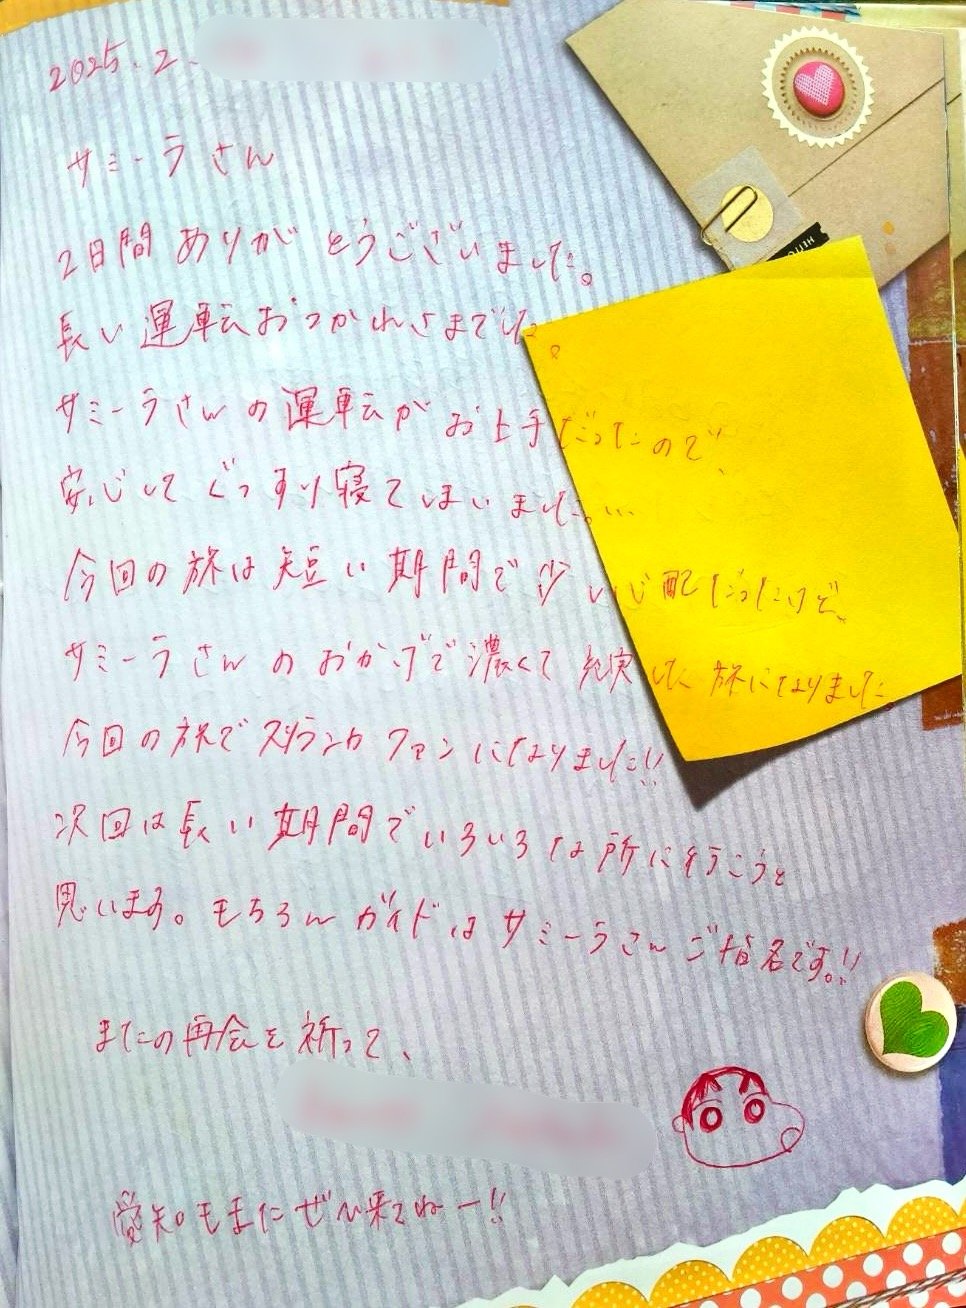 2025.2.
サミーラさん
2日間ありがとうございました。
長い運転おつかれさまでした。
サミーラさんの運転がお上手だったので、
安心してぐっすり寝てしまいました。...
今回の旅は短い期間で少し心配だったけど、
サミーラさんのおかげで濃くて充実した旅になりました。
今回の旅でスリランカファンになりました!!
次回は長い期間でいろいろな所に行こうと
思います。もちろんガイドはサミーラさんご指名です。!!
またの再会を祈って、
愛知もまたぜひ来てねー!!
HELLO